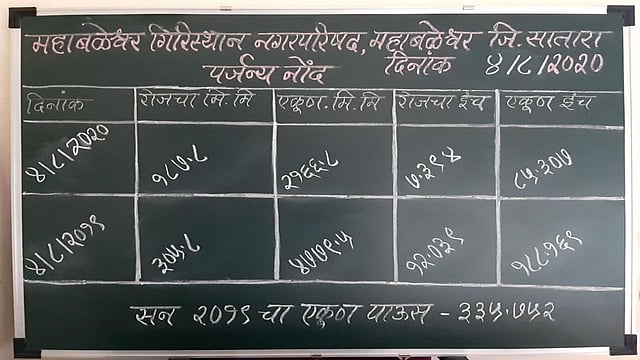 महाबळेश्वर गिरिस्थान नगरपरिषद, महाबळेश्वर जि. सातारा
पर्जन्य नोंद दिनांक ४/८/२०२०
दिनांक रोजचा मि.मि एकूण.मि.मि रोजचा इंच एकूण इंच
४/८/२०२० १८७.८ २१६६.८ ७.३९४ ८५.३०७
४/८/२०१९ ३०५.८ ४७७९.५ १२.०३९ १८८.१६९
सन २०१९ चा एकूण पाऊस - ३३५.७५२